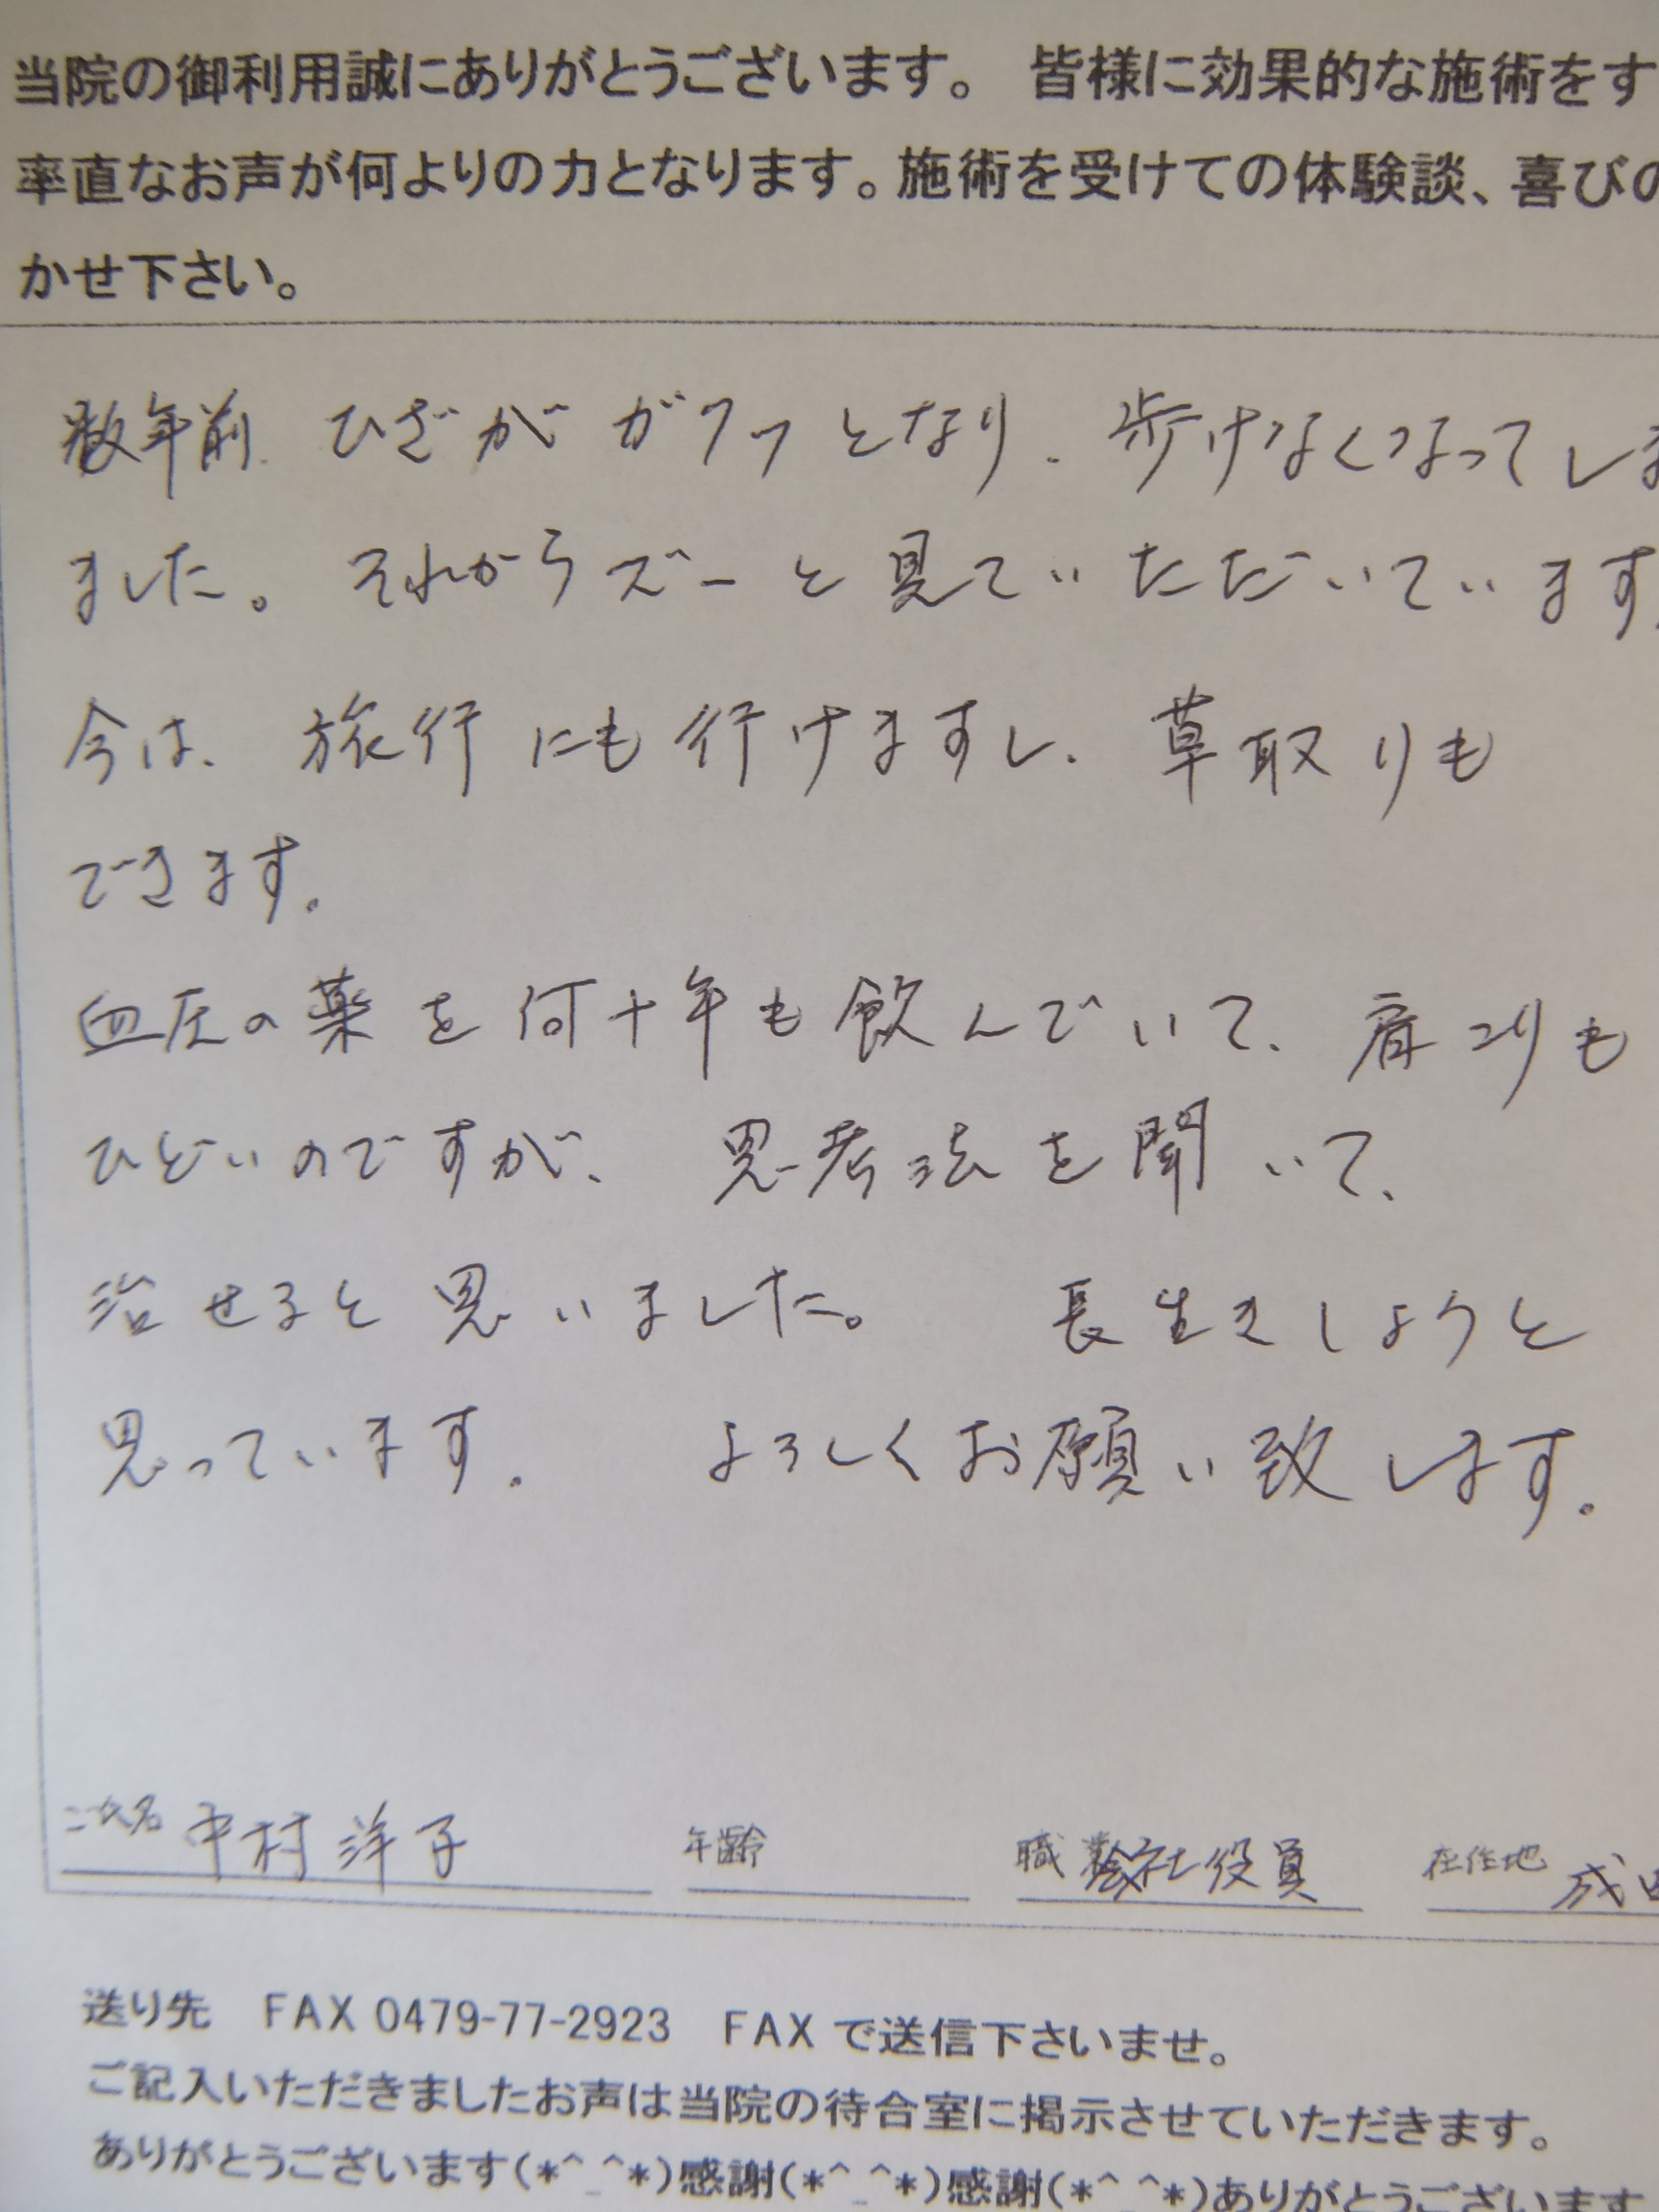 当院の御利用誠にありがとうございます。 皆様に効果的な施術をす
率直なお声が何よりの力となります。施術を受けての体験談、喜びの
かせ下さい。
数年前 ひざが ガクッとなり、歩けなくなってしま
ました。 それからズーと見ていただいています。
今は、旅行にも行けますし、草取りも
できます。
血圧の薬を何十年も飲んでいて、肩コリも
ひどいのですが、 思考法を聞いて、
治せると思いました。 長生きしようと
思っています。 よろしくお願い致します。
ご氏名 中村洋子 年齢 職業 会社役員 在住地 成田
送り先 FAX 0479-77-2923 FAXで送信下さいませ。
ご記入いただきましたお声は当院の待合室に掲示させていただきます。
ありがとうございます(*^_^*)感謝(*^_^*)感謝(*^_^*)ありがとうございます